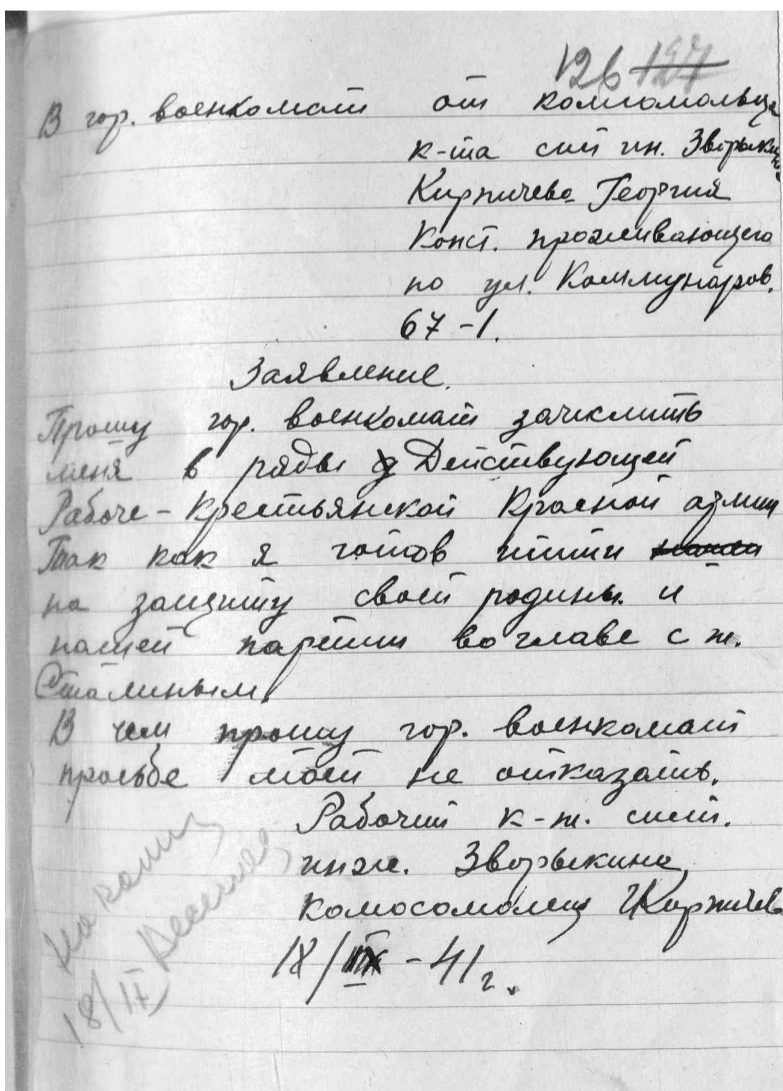 126 127
В гор. военкомат от комсомольца
к-та сист ин. Зворыкин
Кирпичева Георгия
Конст. проживающего
по ул. Коммунаров,
67-1.
Заявление.
Прошу гор. военкомат зачислить
меня в ряды Действующей
Рабоче-Крестьянской Красной армии
Так как я готов итти
на защиту своей родины и
нашей партии во главе с т.
Сталиным.
В чем прошу гор. военкомат
просьбе моей не отказать.
Рабочий к-т. сист.
инж. Зворыкина,
комосомолец Кирпичев
18/IX-41 г.
18/IX